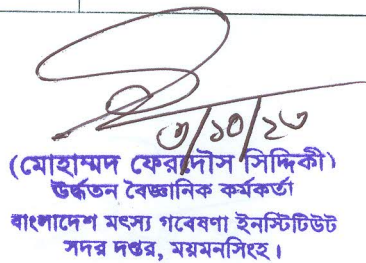 ৩/১০/২৩
(মোহাম্মদ ফেরদৌস সিদ্দিকী)
উর্দ্ধতন বৈজ্ঞানিক কর্মকর্তা
বাংলাদেশ মৎস্য গবেষণা ইনস্টিটিউট
সদর দপ্তর, ময়মনসিংহ।